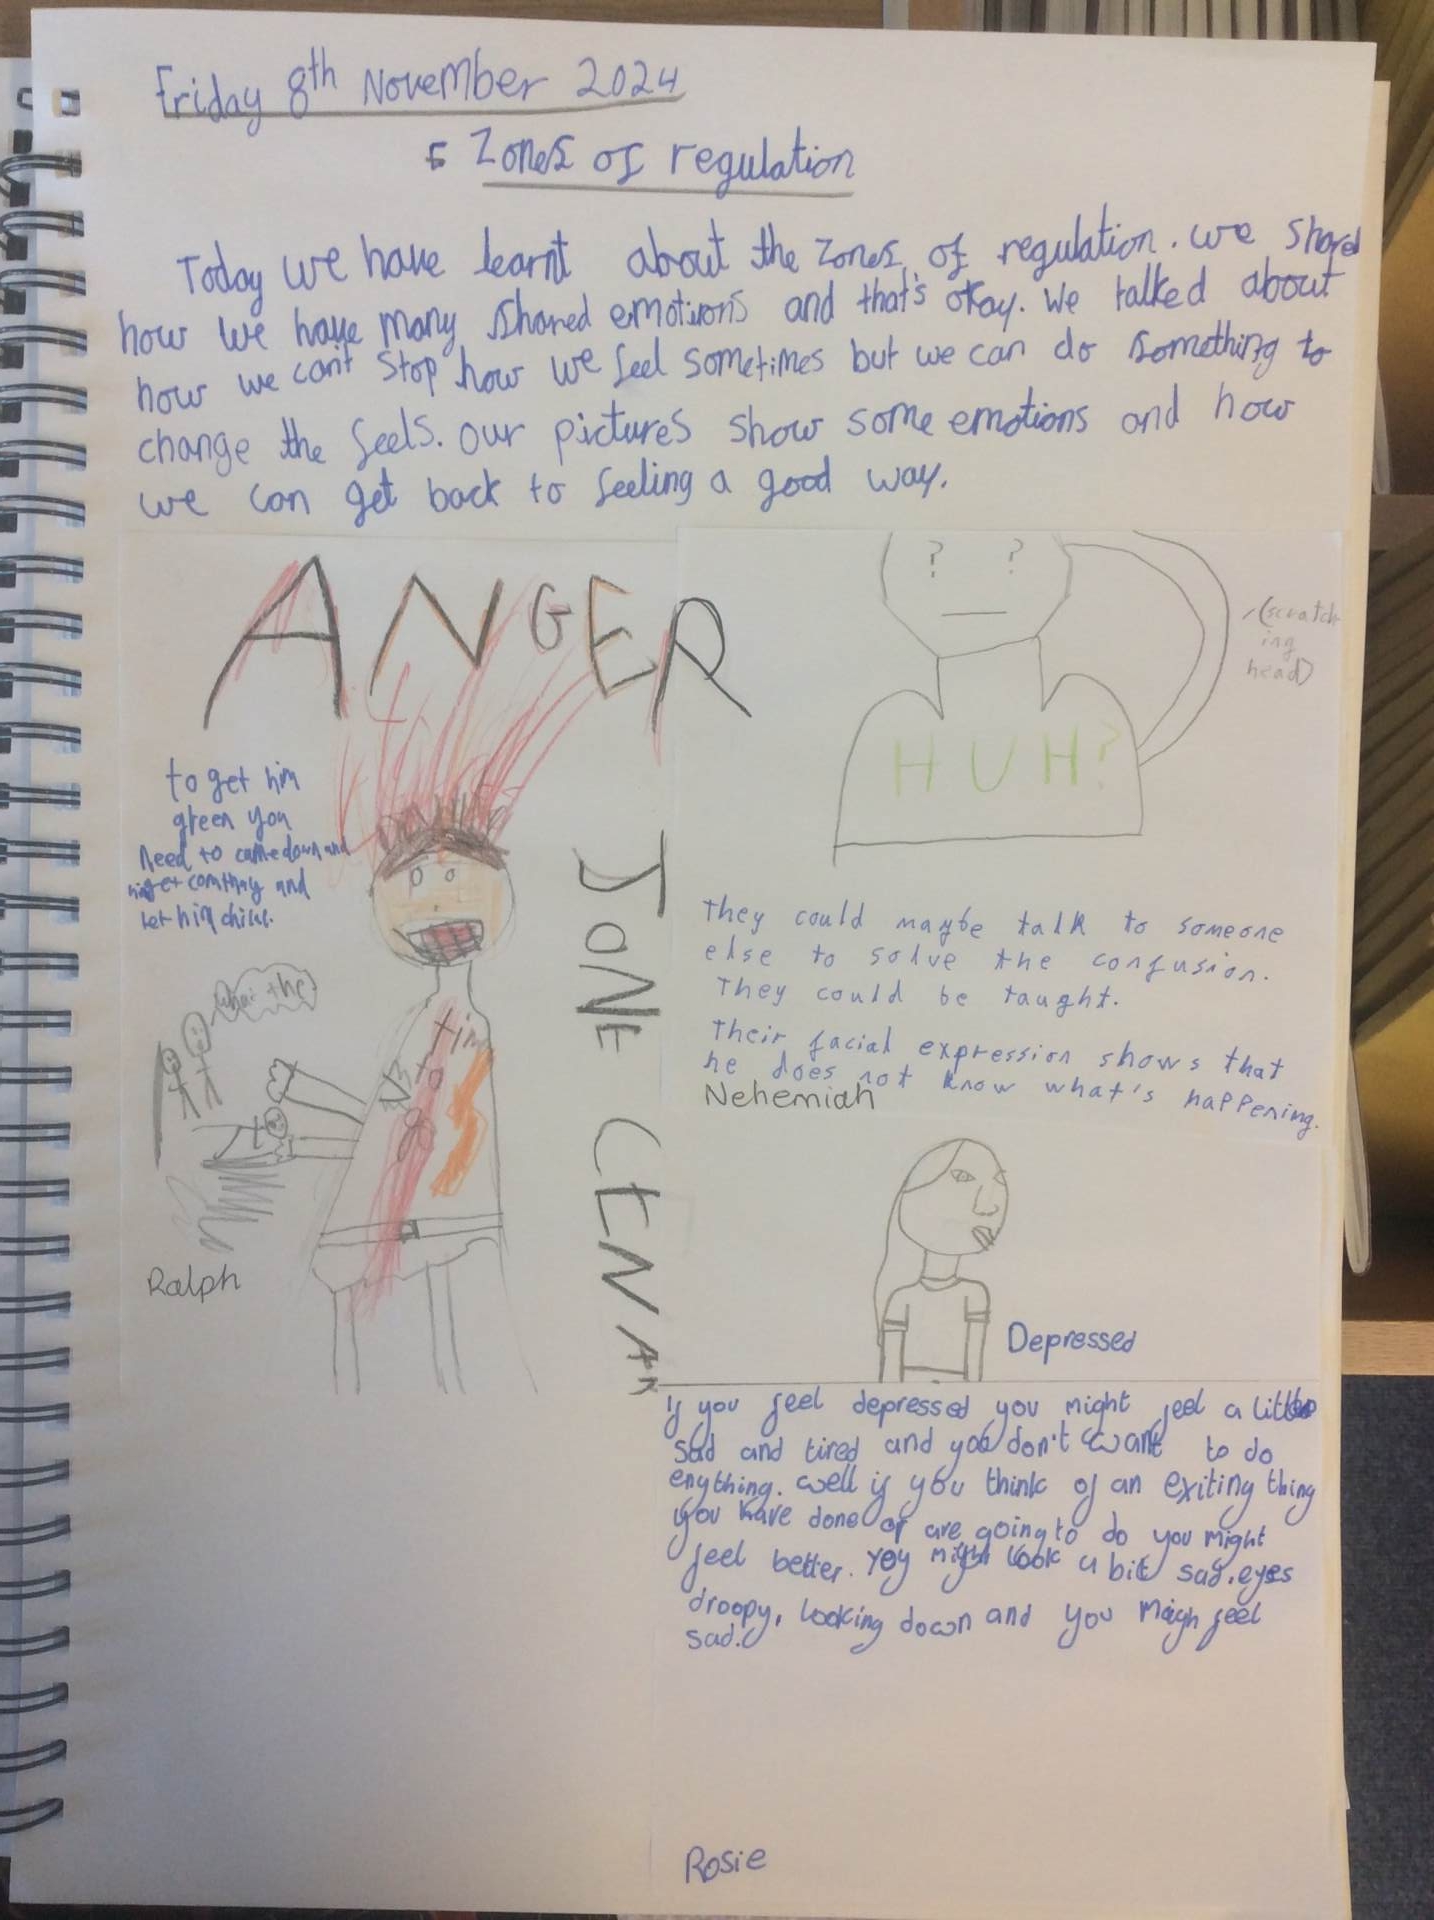 Friday 8th November 2024
Zones of regulation
Today we have learnt about the zones of regulation. we shared
how we have many shared emotions and that's okay. We talked about
how we can't stop how we feel sometimes but we can do something to
change the feels. our pictures show some emotions and how
we can get back to feeling a good way.
ANGER
to get him
green you
Need to came down and
and
let him chill.
what the
Tim
Ralph
?  ?
(scratch
ing
head)
HUH?
They could maybe talk to someone
else to solve the confusion.
They could be taught.
Their facial expression shows that
he does not know what's happening.
Nehemiah
Depressed
If you feel depressed you might feel a little
sad and tired and you don't want to do
enything. well if you think of an exiting thing
you have done or are going to do you might
feel better. You might look a bit sad, eyes
droopy, looking down and you migh feel
sad.
Rosie